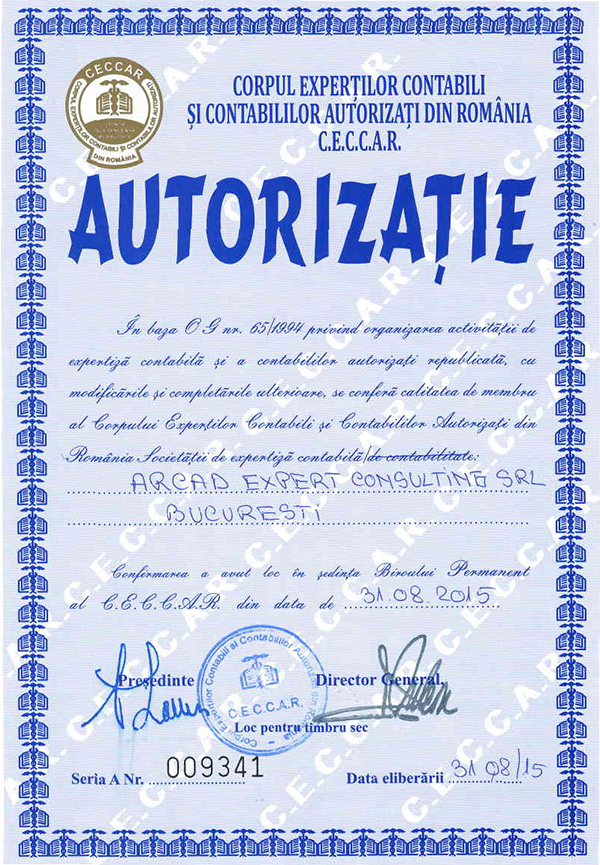 CECCAR
CORPUL EXPERȚILOR CONTABILI ȘI CONTABILILOR AUTORIZAȚI
DIN ROMÂNIA
CORPUL EXPERȚILOR CONTABILI
ȘI CONTABILILOR AUTORIZAȚI DIN ROMÂNIA
C.E.C.C.A.R.
AUTORIZAȚIE
În baza O G nr. 65/1994 privind organizarea activității de
expertiză contabilă și a contabililor autorizați republicată, cu
modificările și completările ulterioare, se conferă calitatea de membru
al Corpului Experților Contabili și Contabililor Autorizați din
România Societății de expertiză contabilă/de contabilitate:
ARCAD EXPERT CONSULTING SRL
BUCURESTI
Confirmarea a avut loc în ședința Biroului Permanent
al C.E.C.C.A.R. din data de 31.08.2015
Președinte
Director General,
Corpul Experților Contabili și Contabililor Autorizați din România
C.E.C.C.A.R.
Loc pentru timbru sec
Seria A Nr. 009341
Data eliberării 31/08/15